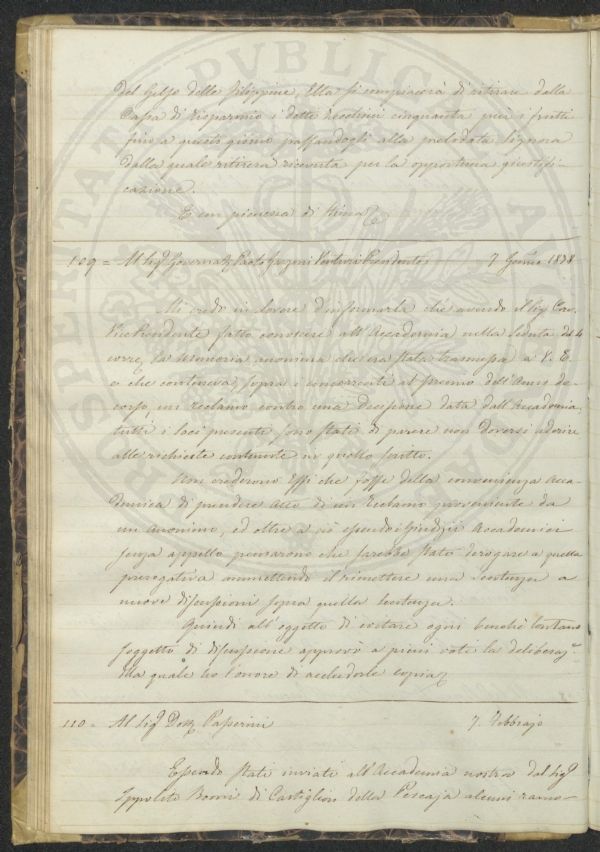 del Golfo delle Filippine, Ella si compiacerà di ritirare dalla
Cassa di Risparmio i detti Zecchini cinquanta più i frutti
fino a questo giorno passandogli alla prelodata Signora
dalla quale ritirerà ricevuta per la opportuna giustifi-
cazione.
E con pienezza di stima
109 = Al Sig.r Governat.e Presidente 7 1828
Mi credo in dovere d'informarla che avendo il Sig.r Cav.
Vice Presidente fatto conoscere all'Accademia nella Seduta del 4
corr.e la memoria anonima che era stata trasmessa a V. E.
e che conteneva, sopra i concorrenti al premio dell'Anno de-
corso, un reclamo contro una decisione data dall'Accademia,
tutti i Soci presenti sono stati di parere non doversi aderire
alle richieste contenute in quello scritto.
Non crederono Essi che fosse della convenienza Acca-
demica di prendere Atto di un reclamo proveniente da
un anonimo, ed oltre a ciò essendo i giudizj Accademici
senza appello pensarono che sarebbe stato derogare a quella
prerogativa ammettendo il rimettere una Sentenza a
nuove discussioni sopra quella Sentenza.
Quindi all'oggetto di evitare ogni benché lontano
soggetto di discussione approvò a pieni voti la deliberaz.e
della quale ho l'onore di accluderle copia
110 = Al Sig.r Dott. Paperini 7. Febbrajo
Essendo stati inviati all'Accademia nostra dal Sig.r
Ippolito di Castiglion della Pescaja alcuni ramo-